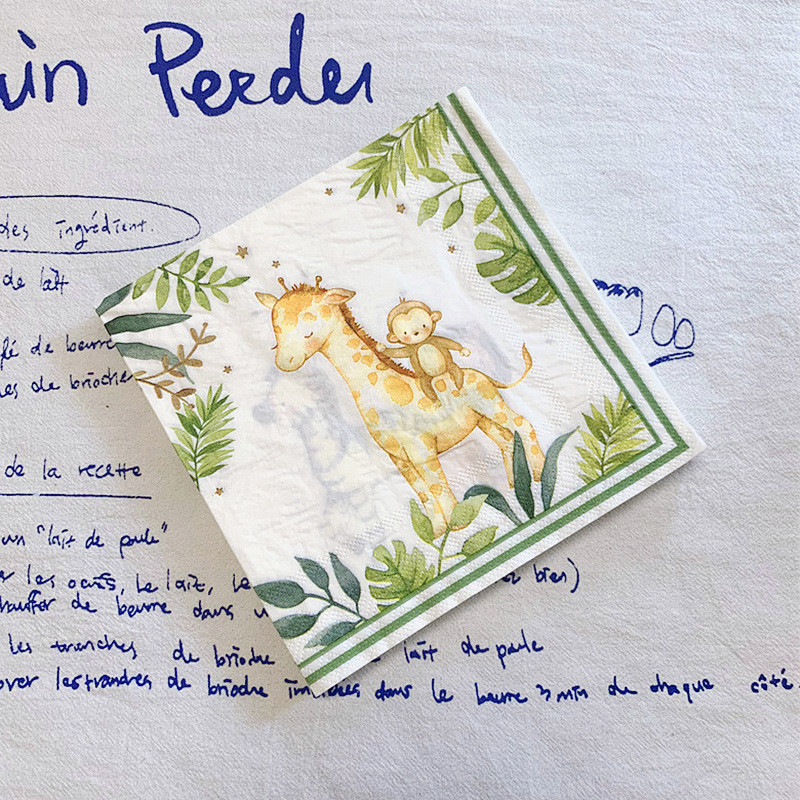 ain Perdu
des ingrédient.
de lait
de beurre
es de brioche
de la recette
un "lait de poule"
les oeufs, le lait, le bien)
chauffer de beurre dans u
les tranches de brioche lait de poule
les tranches de brioche dans le beurre 3 min de chaque côté.